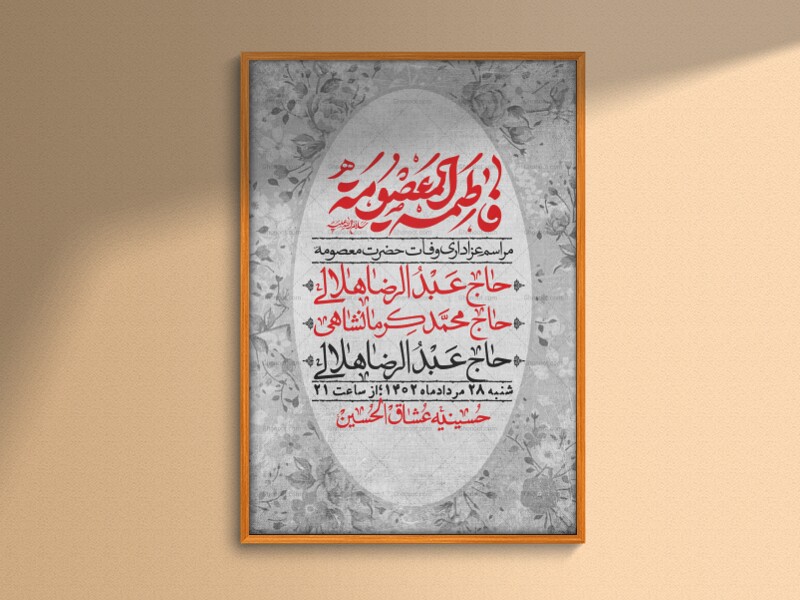 فاطمة المعصومة
سلام الله علیها
مراسم عزاداری وفات حضرت معصومه
حاج عبدالرضا هلالی
حاج محمد کرمانشاهی
حاج عبدالرضا هلالی
شنبه ۲۸ مردادماه ۱۴۰۲؛ از ساعت ۲۱
حسینیه عشاق الحسین